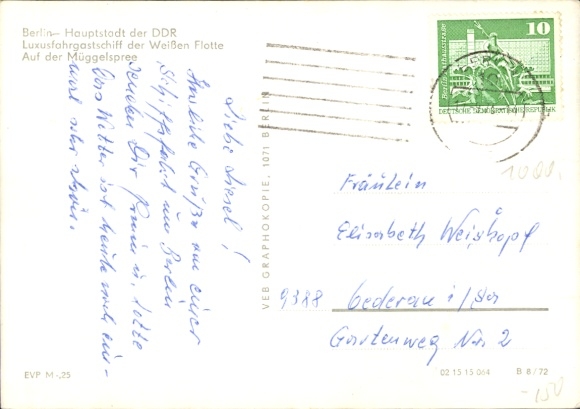 Berlin— Hauptstadt der DDR
Luxusfahrgastschiff der Weißen Flotte
Auf der Müggelspree
Liebe Liesel!
Herzliche Grüße von einer
Schiffahrt um Berlin
senden Dir Omi u. Lotte
Das Wetter ist heute mal wie-
der sehr schön.
VEB GRAPHOKOPIE, 1071 BERLIN
10
Berlin, Rathausstraße
DEUTSCHE DEMOKRATISCHE REPUBLIK
1000,
Fräulein
Elisabeth Weishopf
9388 Oederan i/Sa
Gartenweg Nr. 2
EVP M -,25
02 15 15 064
B 8/72
-.150